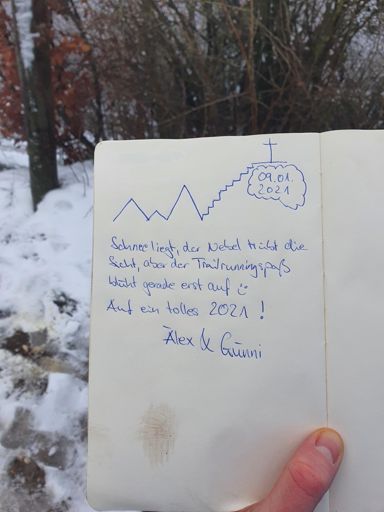 09.01.
2021
Schnee liegt, der Nebel trübt die
Sicht, aber der Trailrunningspaß
blüht gerade erst auf :)
Auf ein tolles 2021!
Alex & Gunni